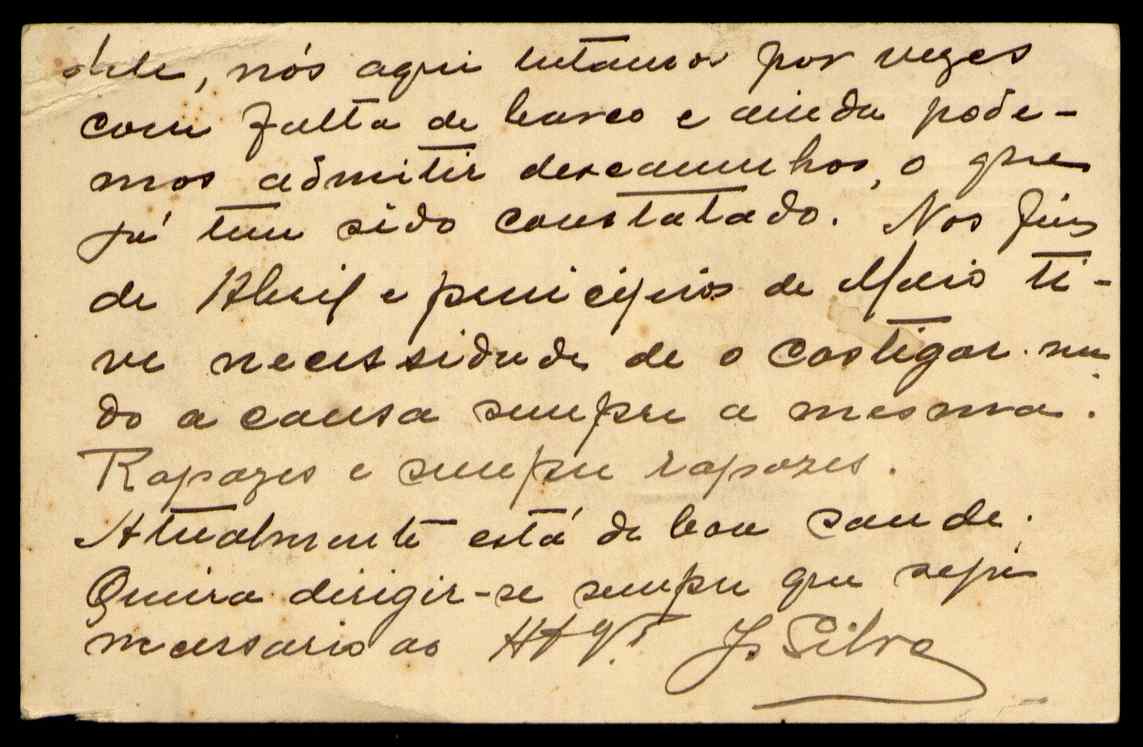 dele, nós aqui lutamos por vezes
com falta de barco e ainda pode-
mos admitir descaminhos, o que
já tem sido constatado. Nos fins
de Abril e principios de Maio ti-
ve necessidade de o castigar sen
do a causa sempre a mesma.
Rapazes e sempre rapazes.
Atualmente está de boa saude.
Queira dirigir-se sempre que seja
necessario ao
J. Silva